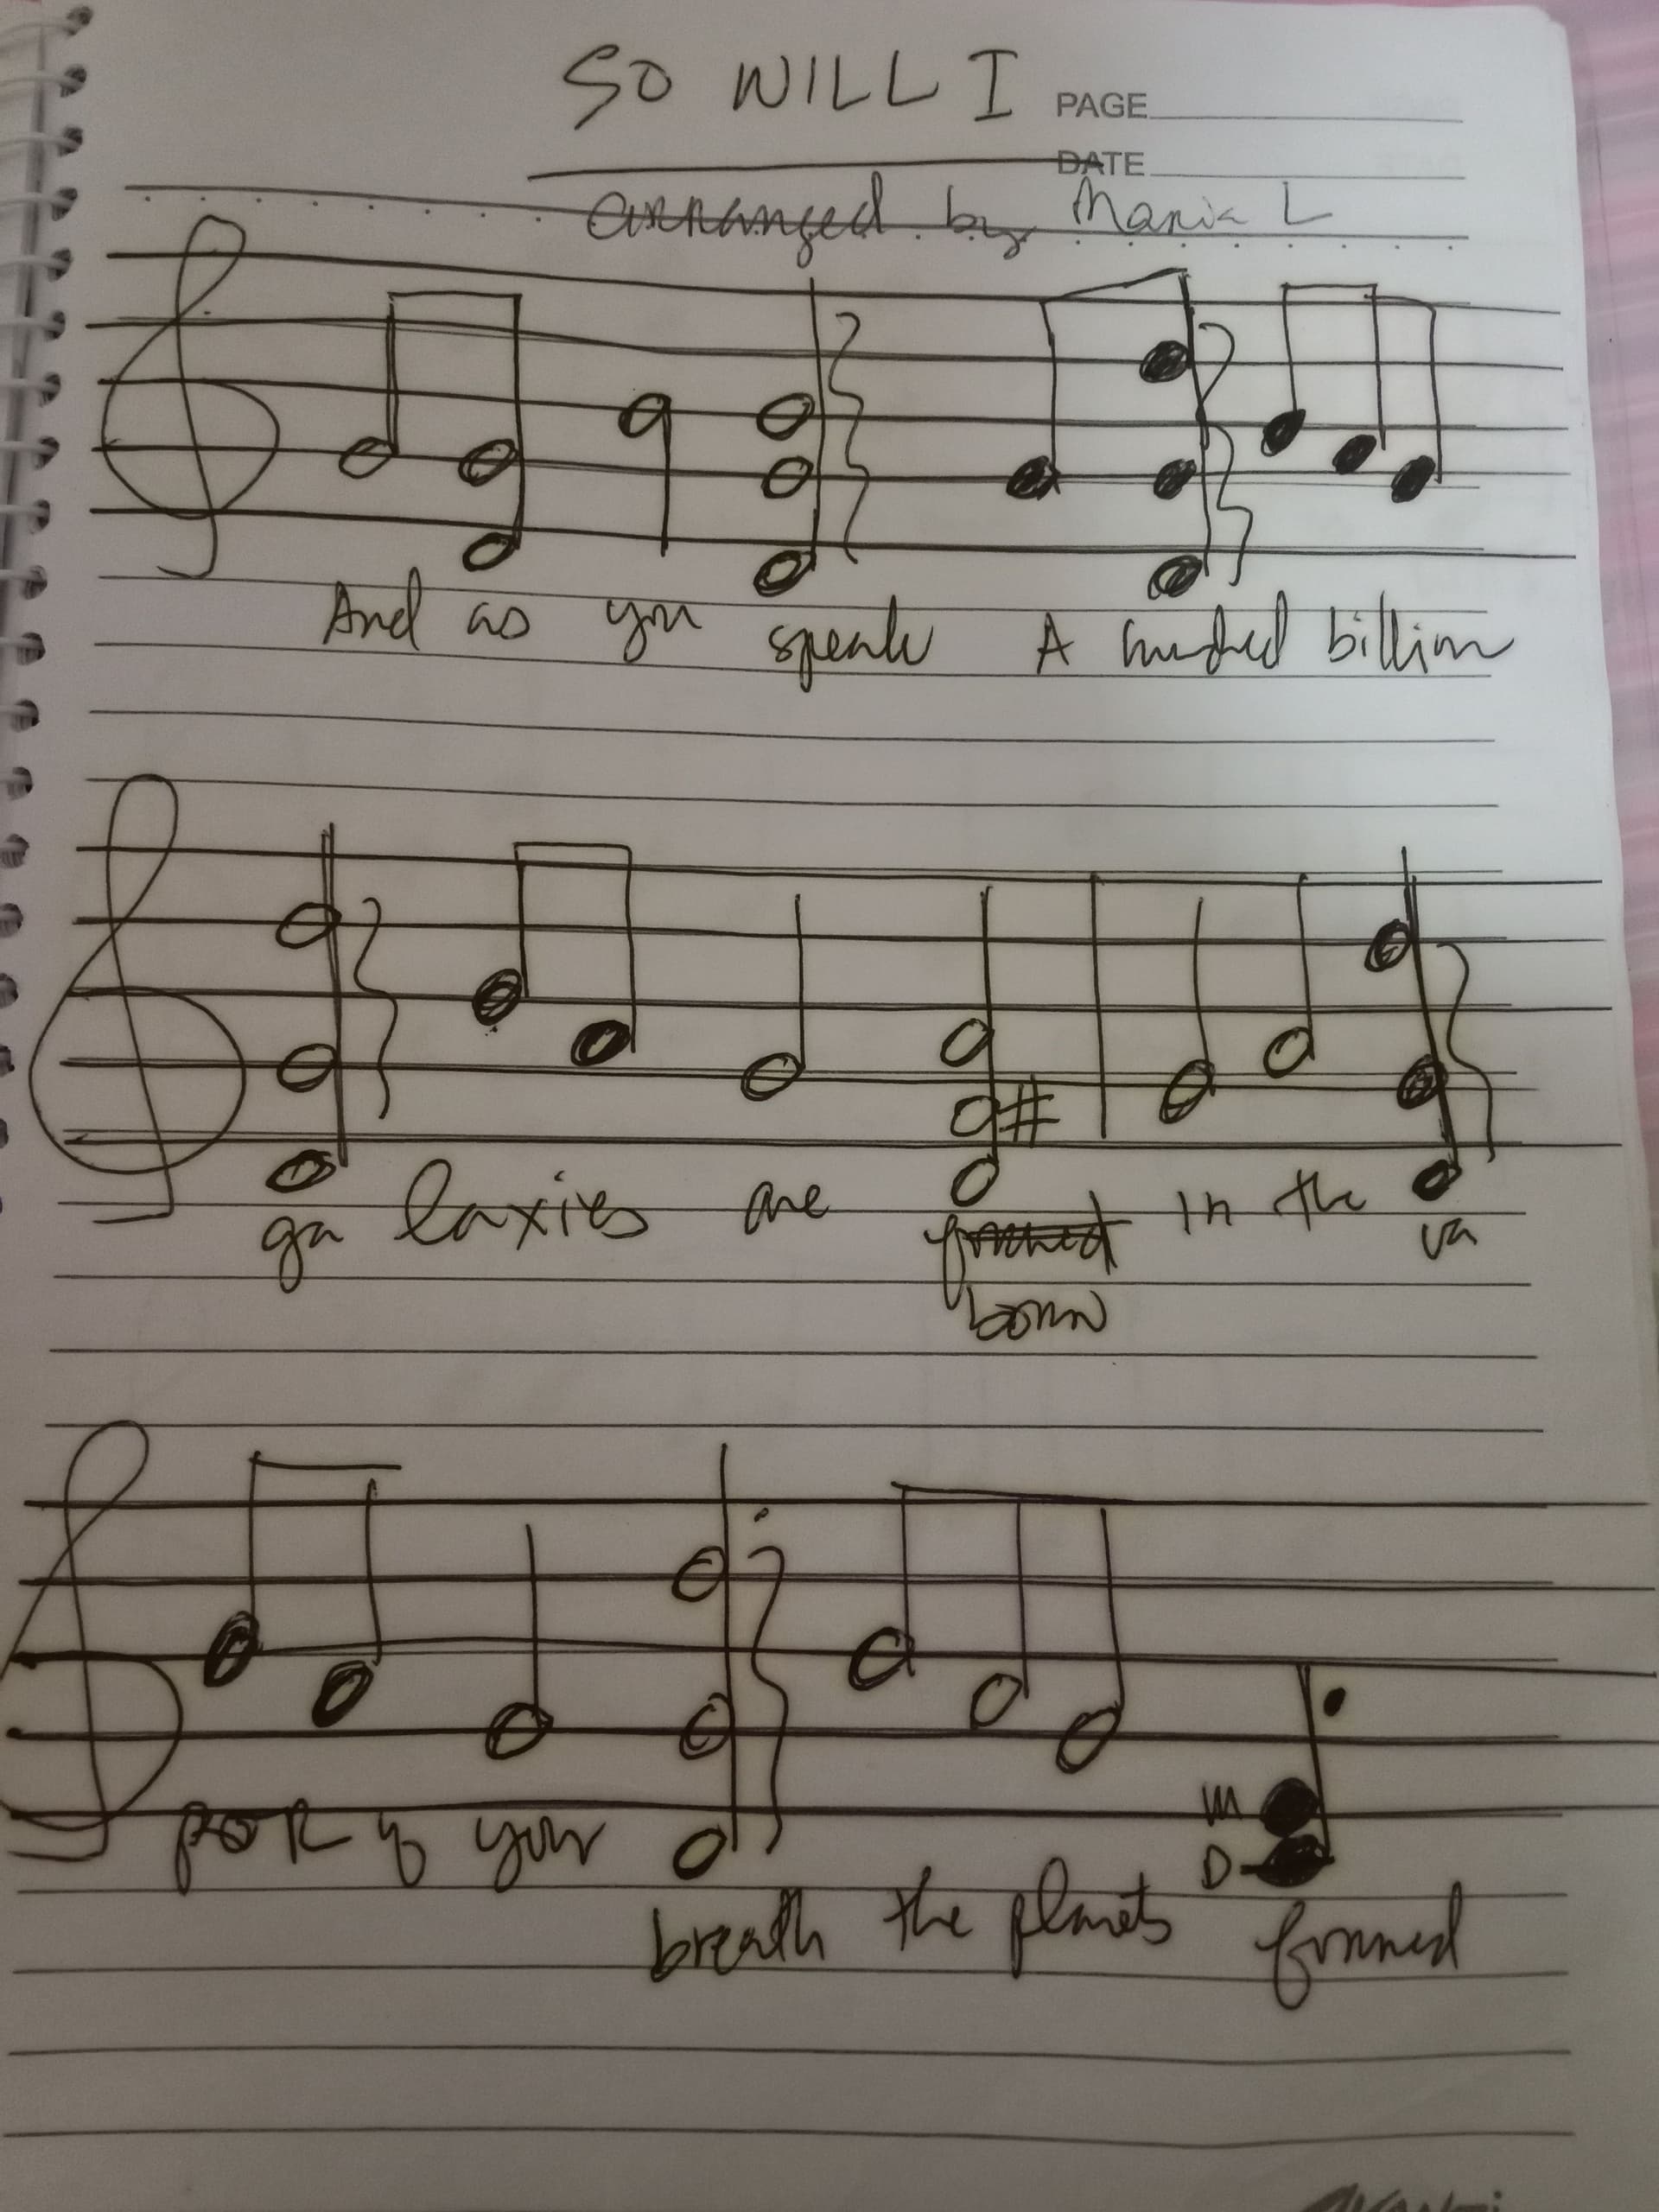 SO WILL I
PAGE
DATE
arranged by Maria L
And as you speak A hundred billion
ga laxies are formed in the va
born
POR of your
M
D
breath the planets formed